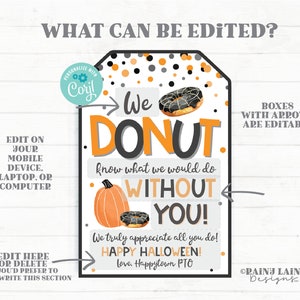 WHAT CAN BE EDITED?
PERSONALIZE WITH
Corjl
We
DONUT
know what we would do
WITHOUT
YOU!
We truly appreciate all you do!
HAPPY HALLOWEEN!
love, Happytown PTO
EDIT ON
YOUR
MOBILE
DEVICE,
LAPTOP, OR
COMPUTER
BOXES
WITH ARROW
ARE EDITAB
EDIT HERE
OR DELETE
OU'D PREFER TO
WRITE THIS SECTION
©RAINJ LAIN
Designs